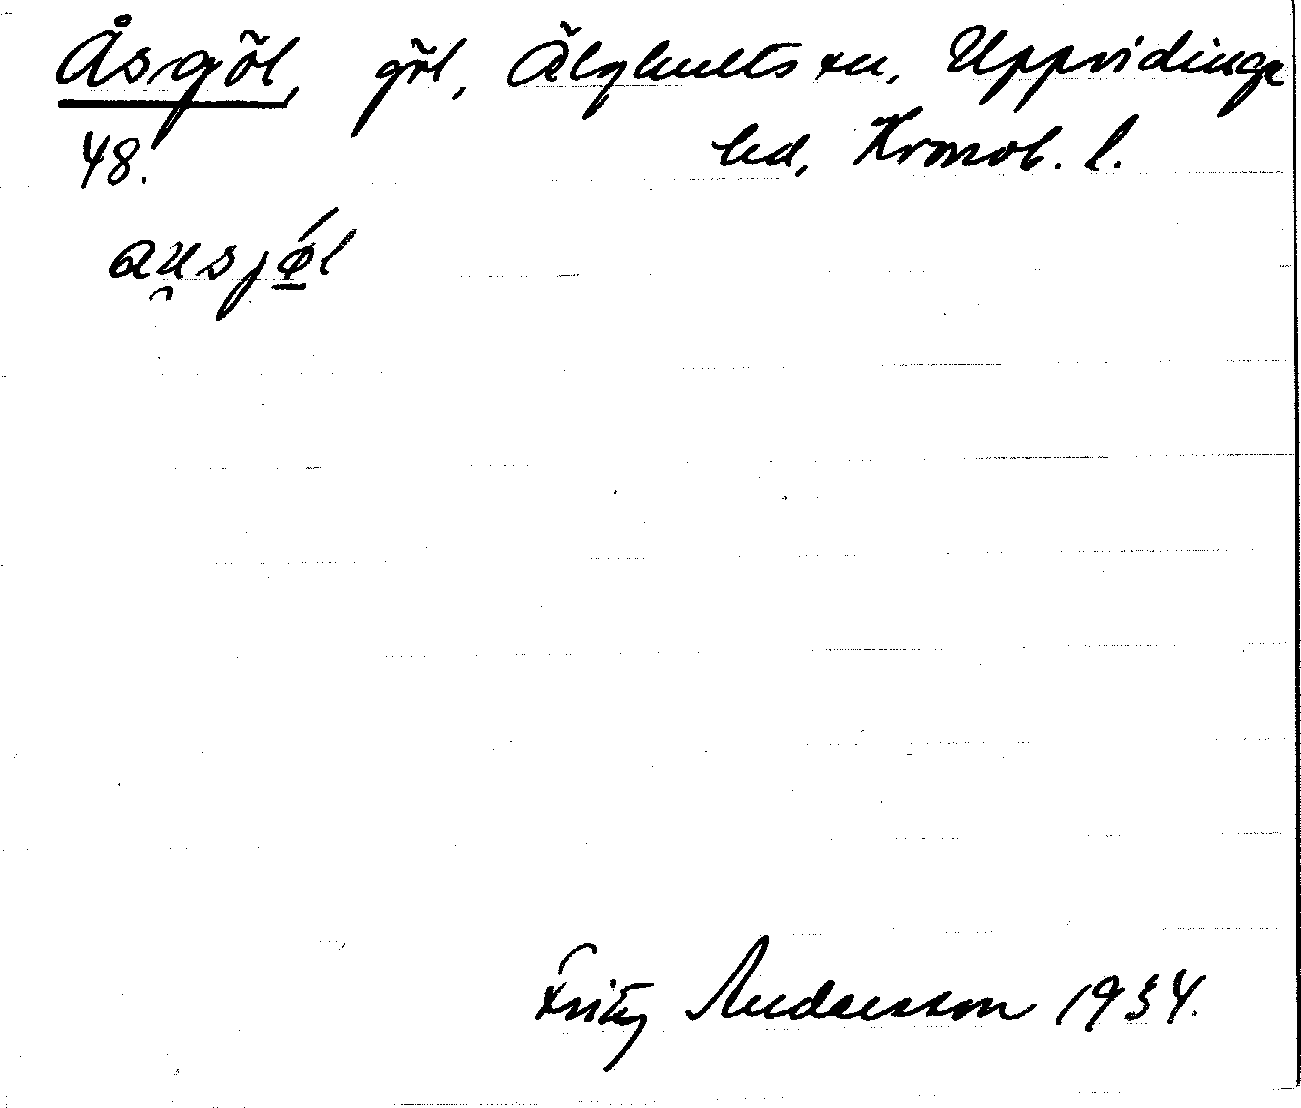 Åsgöl, göl, Älghults sn, Uppvidinge
48. hd, Kronob. l.
au̯sjǿ̲l
Fritz Andersson 1934.